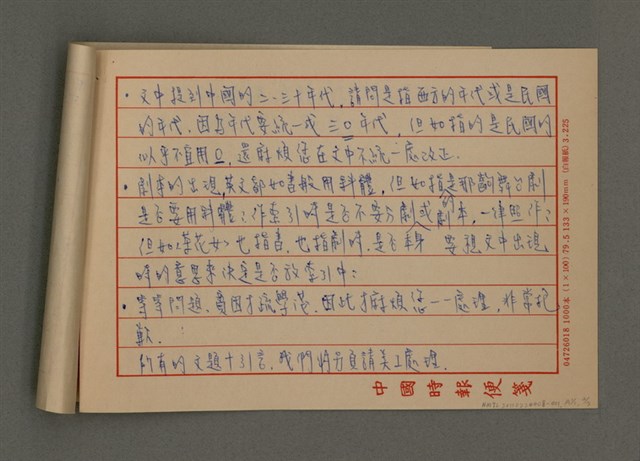 ·文中提到中國的二、三十年代,請問是指西方的年代或是民國
的年代,因為年代要統一成三〇年代,但如指的是民國的
似乎不宜用〇,還麻煩您在文中不統一處改正.
·劇本的出現,英文部如書般用斜體,但如指是那齣舞台劇
是否要用斜體?作索引時是否不要分劇或劇本,一律照作?
但如《茶花女》也指書,也指劇時,是否 要視文中出現
時的意思來決定是否放索引中?
·等等問題,實因才疏學淺,因此才麻煩您一一處理,非常抱
歉.
所有的文題十引言,我們將另負請美工處理.
中國時報便箋
04726018 1000本 (1×100) 79.5 133×190mm (白報紙) 3.225